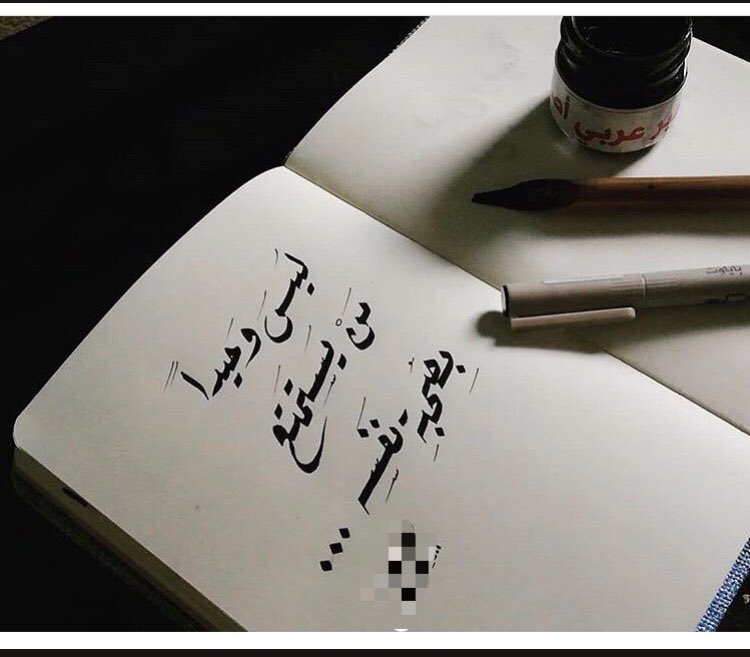 ليس وحيداً
مَنْ يستمتع
بصحبةِ نفسِه ...
بر عربي أص